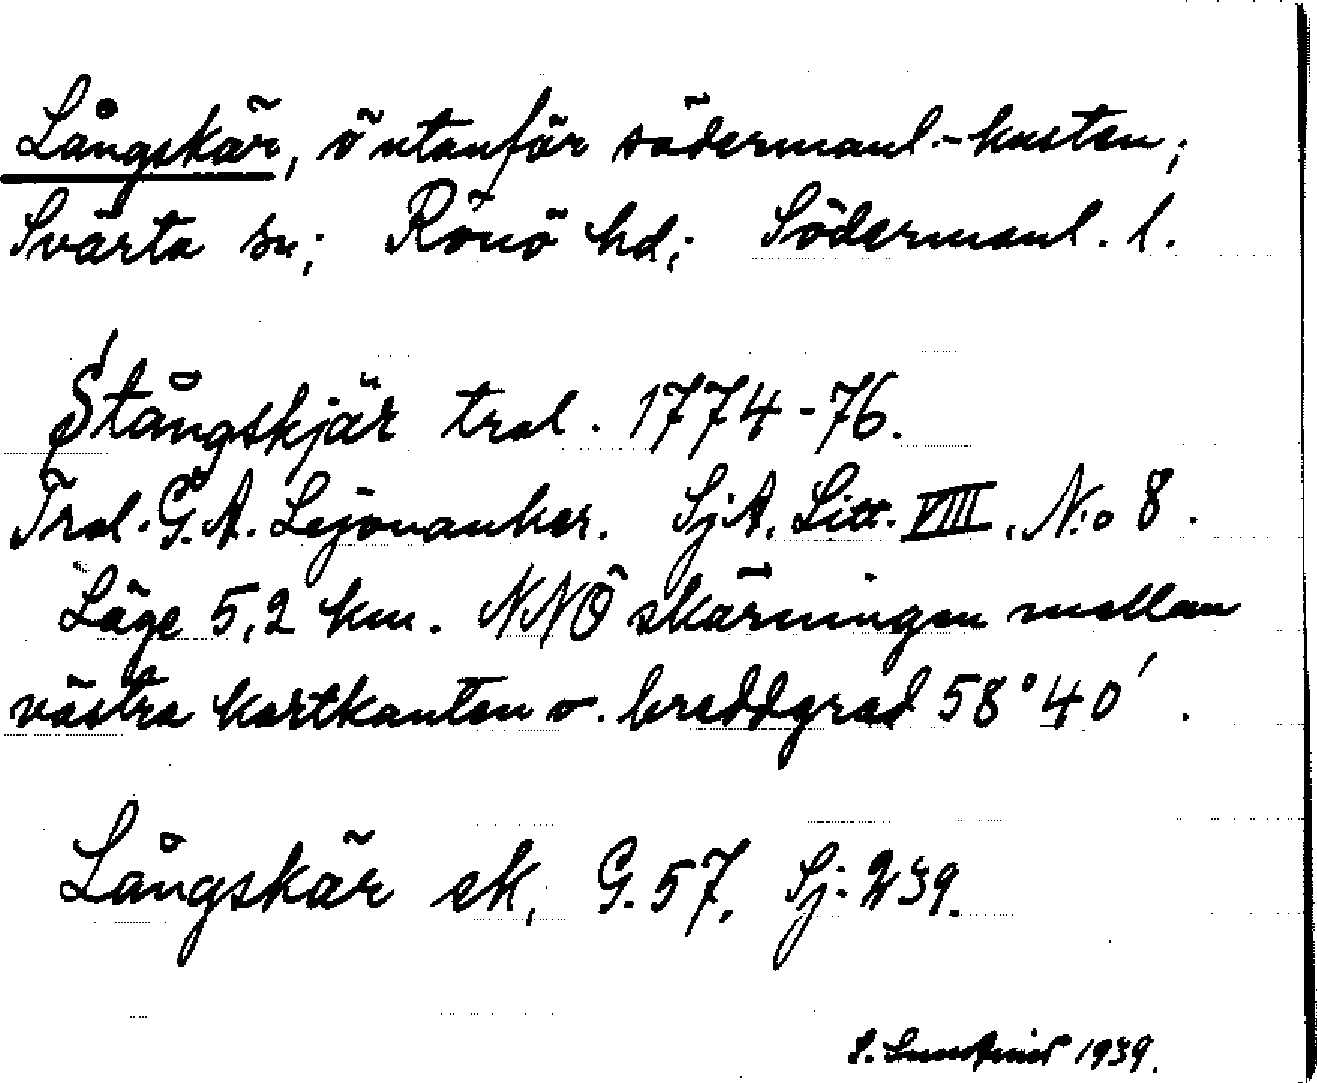 Långskär, ö utanför södermanl.-kusten;
Svärta sn; Rönö hd; Södermanl. l.
Stångskjär tral. 1774-76.
Tral. G. A. Lejonanker. SjA. Litt. VIII. N:o 8.
Läge 5,2 km. NNÖ skärningen mellan
västra kartkanten o. breddgrad 58°40′.
Långskär ek. G. 57. Sj: 239.
S. Sundqvist 1939.